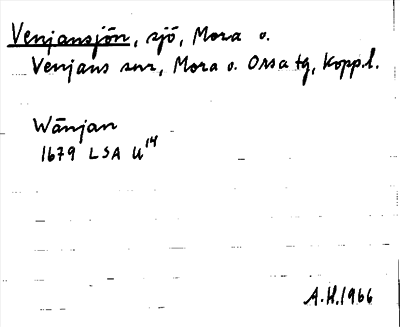 Venjansjön, sjö, Mora o.
Venjans snr, Mora o. Orsa tg, Kopp.l.
Wänjan
1679 LSA U14
A.H. 1966